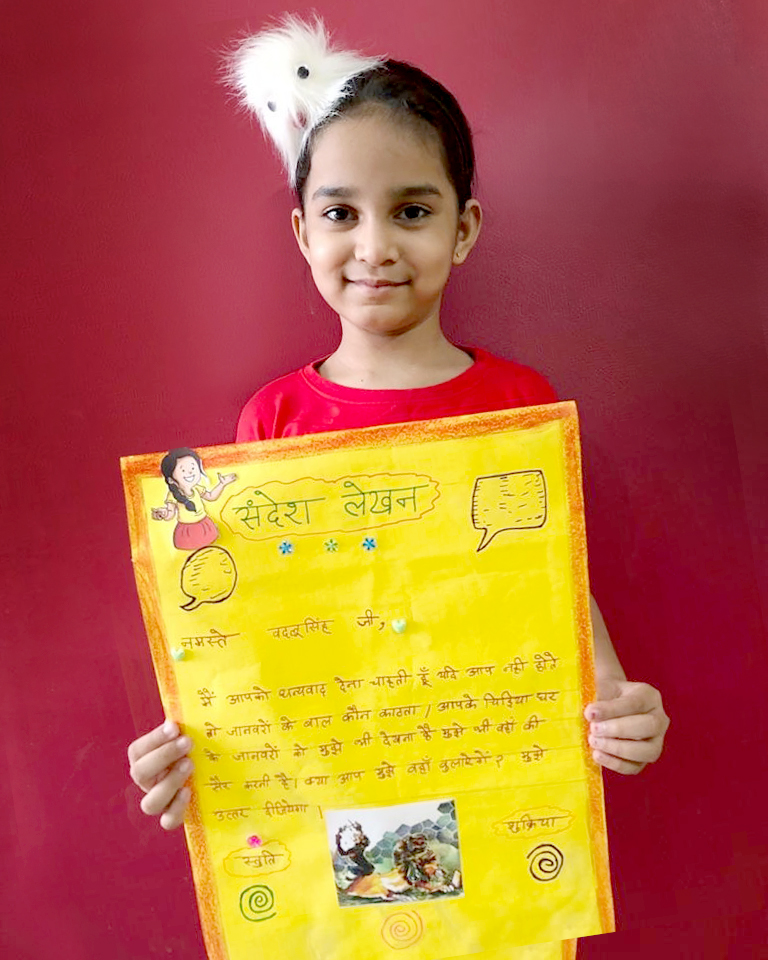 संदेश लेखन
नमस्ते बदलूसिंह जी,
मैं आपको धन्यवाद देना चाहती हूँ यदि आप नही होते
तो जानवरों के बाल कौन काटता। आपके चिड़िया घर
के जानवरों को मुझे भी देखना है मुझे भी वहाँ की
सैर करनी है। क्या आप मुझे वहाँ बुलाऐगें? मुझे
उत्तर दीजियेगा।
शुक्रिया
स्तुति